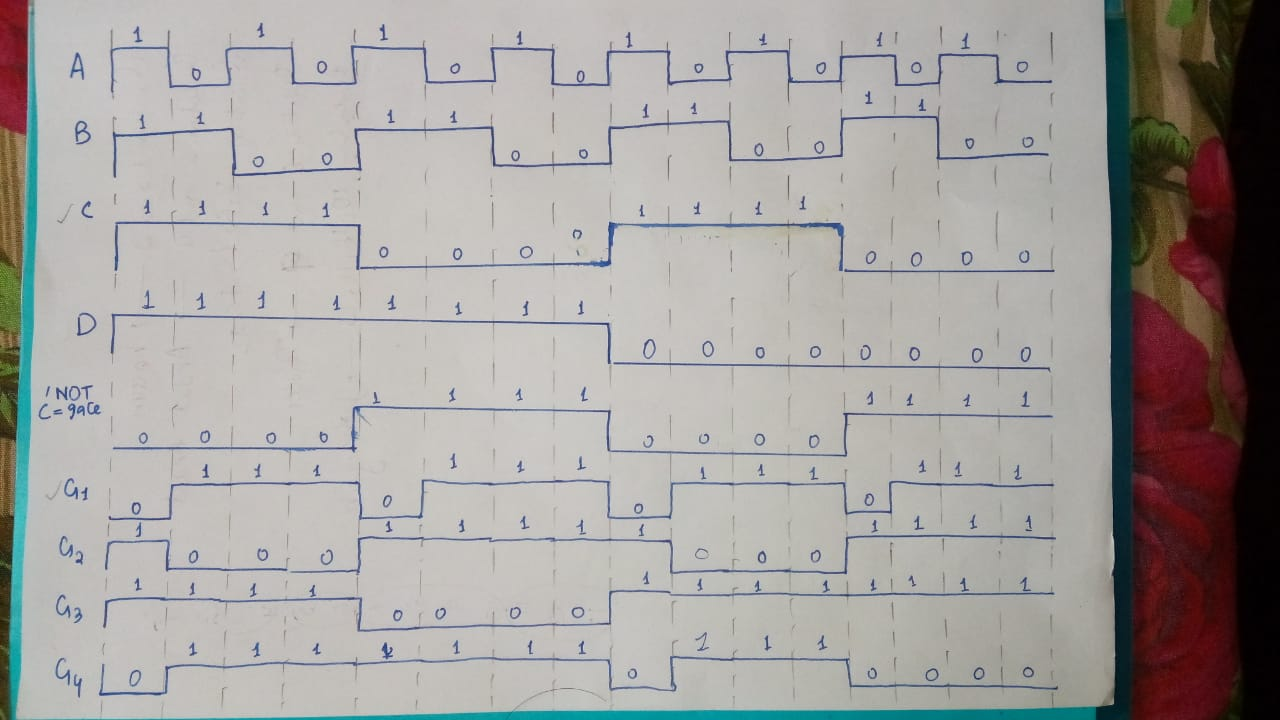 A 1 0 1 0 1 0 1 0 1 0 1 0 1 0 1 0
B 1 1 0 0 1 1 0 0 1 1 0 0 1 1 0 0
✓ C 1 1 1 1 0 0 0 0 1 1 1 1 0 0 0 0
D 1 1 1 1 1 1 1 1 0 0 0 0 0 0 0 0
NOT
C = gate 0 0 0 0 1 1 1 1 0 0 0 0 1 1 1 1
✓ G1 0 1 1 1 0 1 1 1 0 1 1 1 0 1 1 1
G2 1 0 0 0 1 1 1 1 1 0 0 0 1 1 1 1
G3 1 1 1 1 0 0 0 0 1 1 1 1 1 1 1 1
G4 0 1 1 1 1 1 1 1 0 1 1 1 0 0 0 0